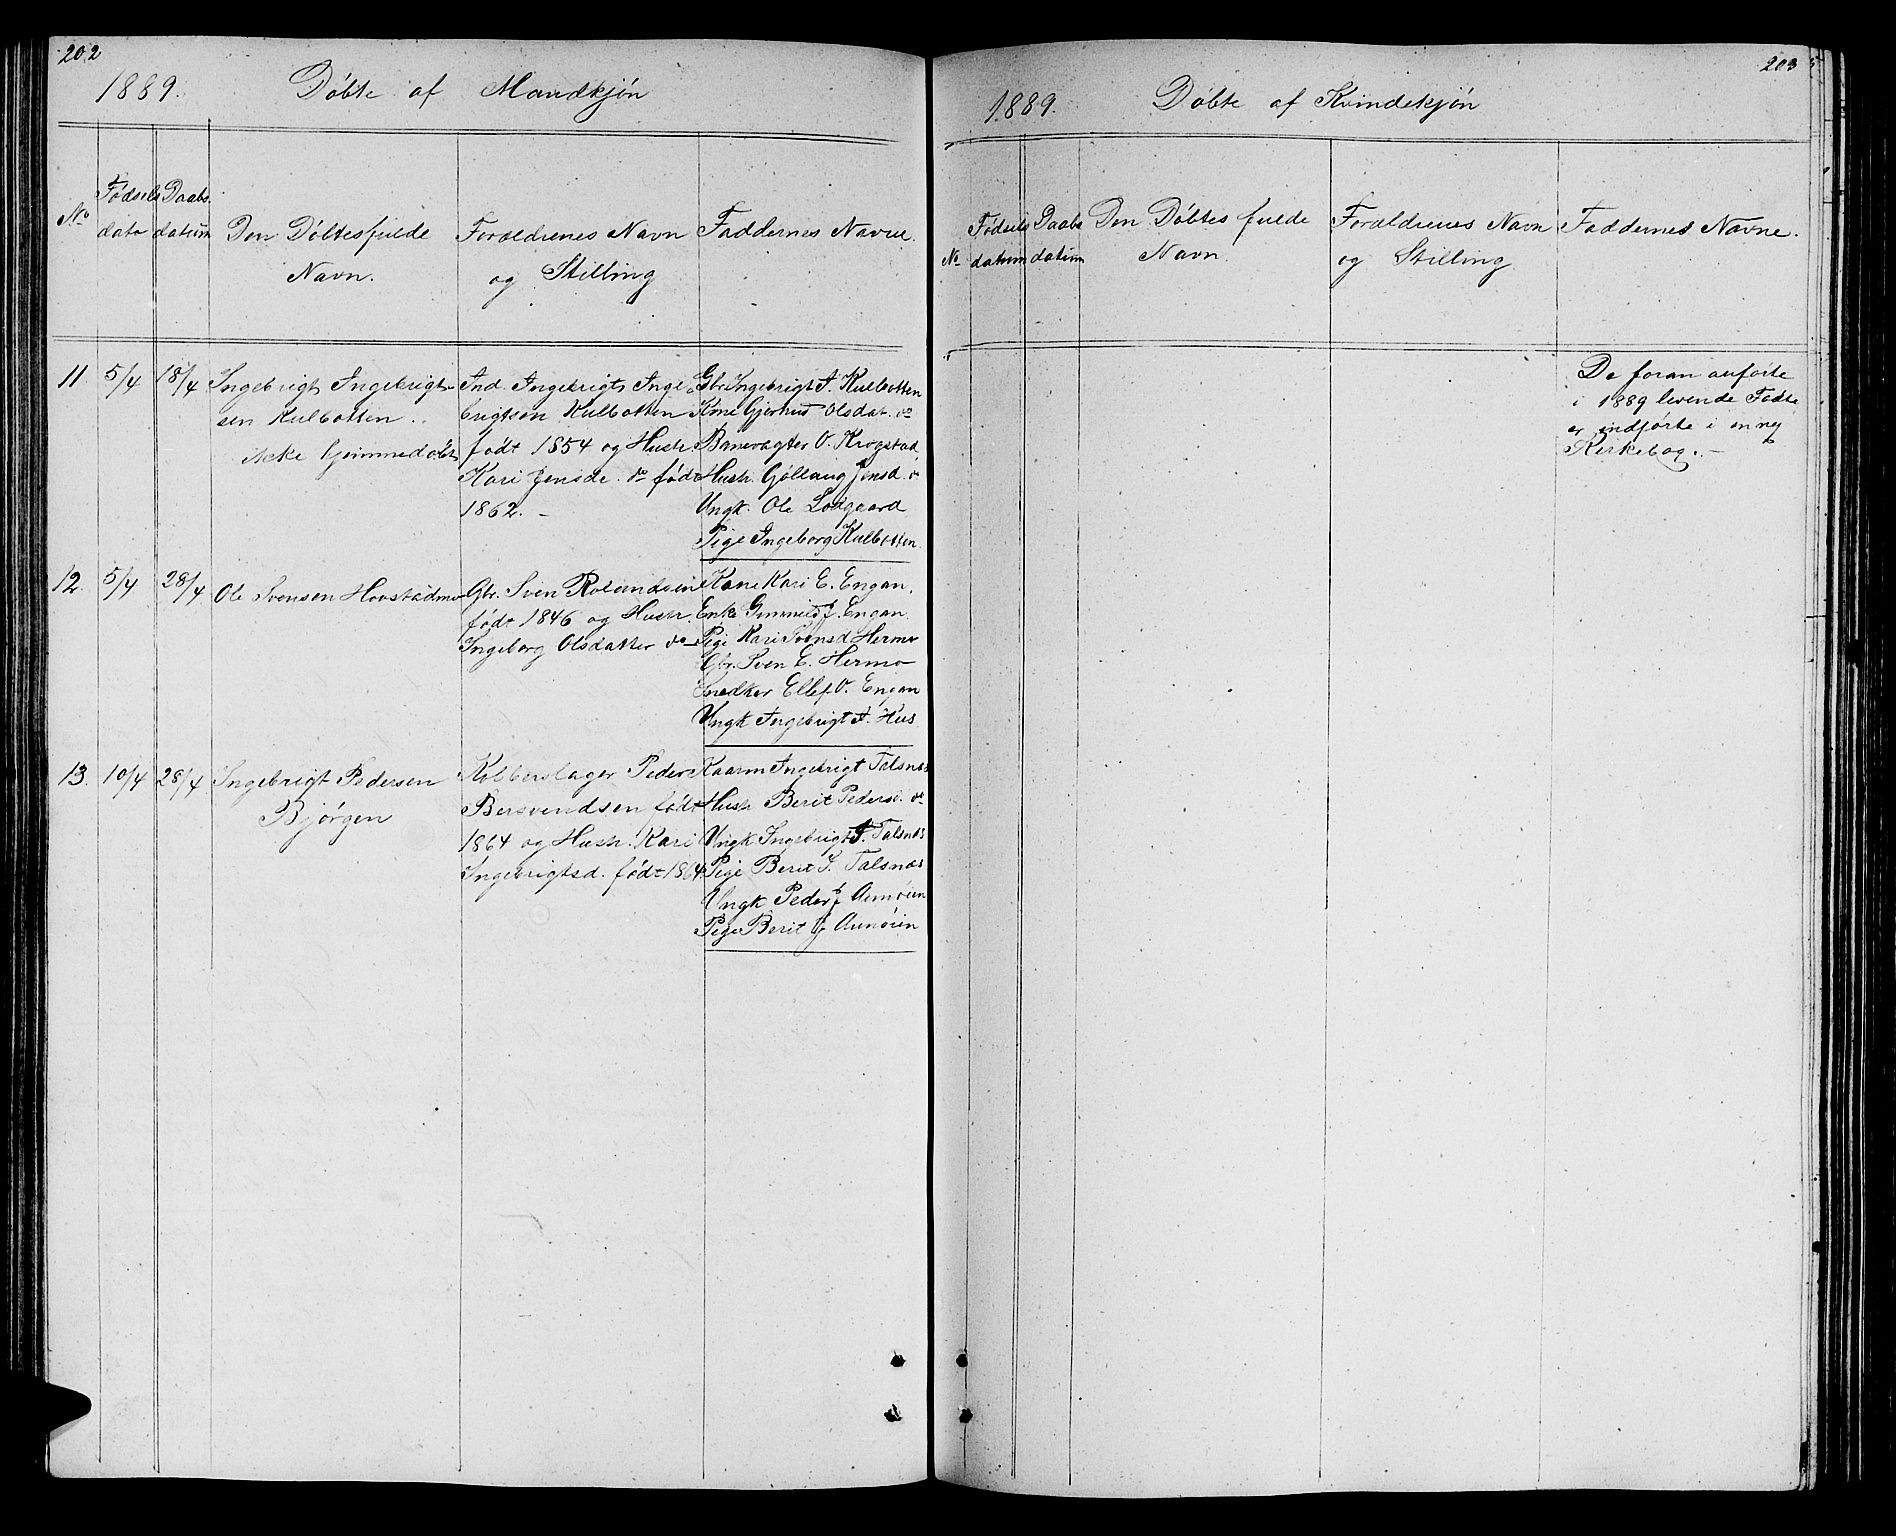 202
1889. Døbte af Mandkjøn
No
Fødsels
dato
Daabs
datum
Den Døbtes fulde
Navn.
Forældrenes Navn
og Stilling
Faddernes Navne.
11. 5/4 18/4
Ingebrigt Ingebrigt-
sen Kulbotten.
ikke hjemmedøbt
Ind. Ingebrigt Inge
brigtsen Kulbotten
født 1854 og Hustr.
Kari Jensd. do født
1862. -
Gbr. Ingebrigt I. Kulbotten
Kone Gjertrud Olsdat. do
Banevogter O. Krogstad
Hustr. Gollaug Jensd. do
Ungk. Ole Lodgaard
Pige Ingeborg Kulbotten
12. 5/4 28/4
Ole Svensen Hovstadmo
Gbr. Sven
født 1846 og Hustr.
Ingeborg Olsdatter do
Kone Kari E. Engan.
Enke Gunnild J. Engan
Pige Kari Svensd Hermo
Gbr. Sven E. Hermo
Snedker Ellef O. Engan
Ungk Ingebrigt I. Hus
13. 10/4 28/4
Ingebrigt Pedersen
Bjørgen
Kobberslager Peder
Bersvendsen født
1864 og Hustr. Kari
Ingebrigtsd. født 1864
Kaarm Ingebrigt Talsnæs
Hustr Berit Pedersd. do
Ungk Ingebrigt I. Talsnæs
Pige Berit I. Talsnæs
Ungk Peder J Aunøien
Pige Berit J Aunøien
203
1889. Døbte af Kvindekjøn
No
Fødsels
datum
Daabs
datum
Den Døbtes fulde
Navn.
Forældrenes Navn
og Stilling
Faddernes Navne.
De foran anførte
i 1889 levende Fødte
er indførte i en ny
Kirkebog. -